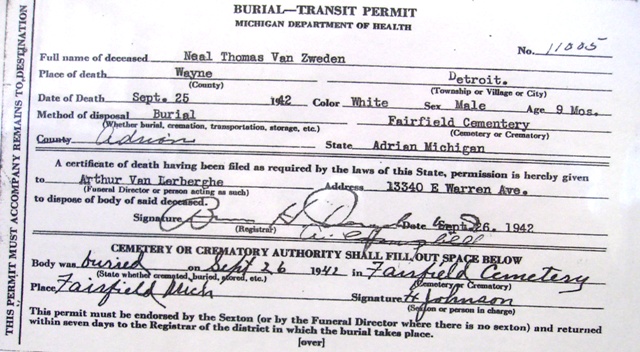 BURIAL—TRANSIT PERMIT
MICHIGAN DEPARTMENT OF HEALTH
No. 11005
Full name of deceased Neal Thomas Van Zweden
Place of death Wayne Detroit.
(County) (Township or Village or City)
Date of Death Sept. 25 1942 Color White Sex Male Age 9 Mos.
Method of disposal Burial Fairfield Cementery
(Whether burial, cremation, transportation, storage, etc.) (Cemetery or Crematory)
County Adrian State Adrian Michigan
A certificate of death having been filed as required by the laws of this State, permission is hereby given
to Arthur Van Lerberghe Address 13340 E Warren Ave.
(Funeral Director or person acting as such)
to dispose of body of said deceased.
Signature Date Sept. 26. 1942
(Registrar)
CEMETERY OR CREMATORY AUTHORITY SHALL FILL OUT SPACE BELOW
Body was buried on Sept 26 1942 in Fairfield Cemetery
(State whether cremated, buried, stored, etc.) (Cemetery or Crematory)
Place Fairfield Mich Signature H Johnson
(Sexton or person in charge)
This permit must be endorsed by the Sexton (or by the Funeral Director where there is no sexton) and returned
within seven days to the Registrar of the district in which the burial takes place.
[over]
THIS PERMIT MUST ACCOMPANY REMAINS TO DESTINATION